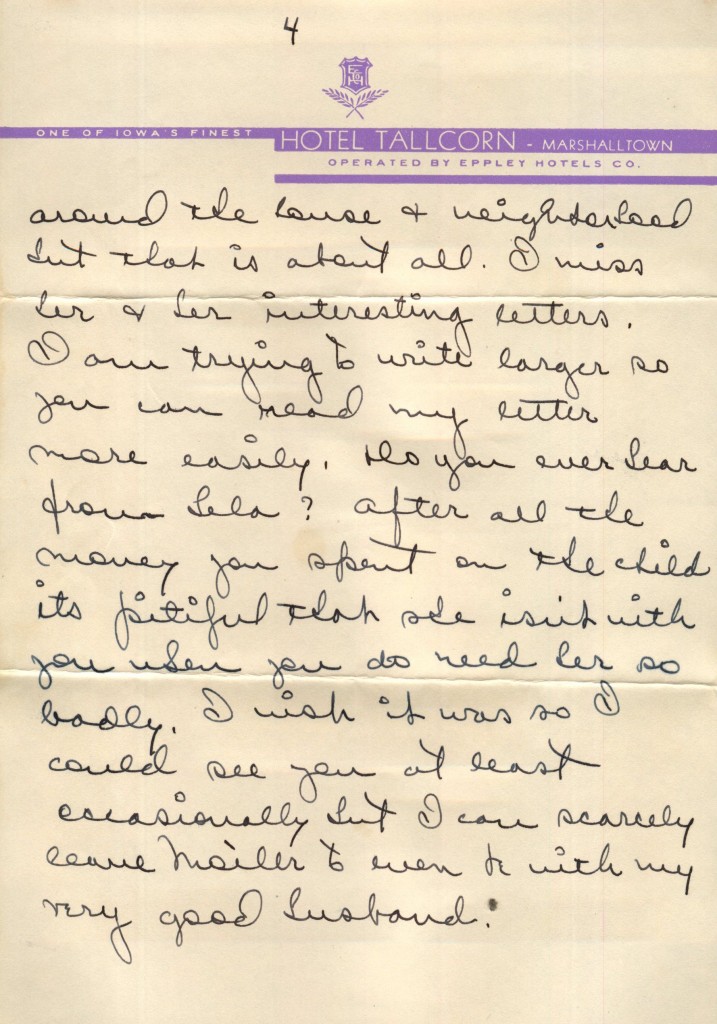 4
ONE OF IOWA'S FINEST
HOTEL TALLCORN - MARSHALLTOWN
OPERATED BY EPPLEY HOTELS CO.
around the house & neighborhood
but that is about all. I miss
her & her interesting letters.
I am trying to write larger so
you can read my letter
more easily. Do you ever hear
from Lela? After all the
money you spent on the child
its pitiful that she isn't with
you when you do need her so
badly. I wish it was so I
could see you at least
occasionally but I can scarcely
leave Mother to even be with my
very good husband.